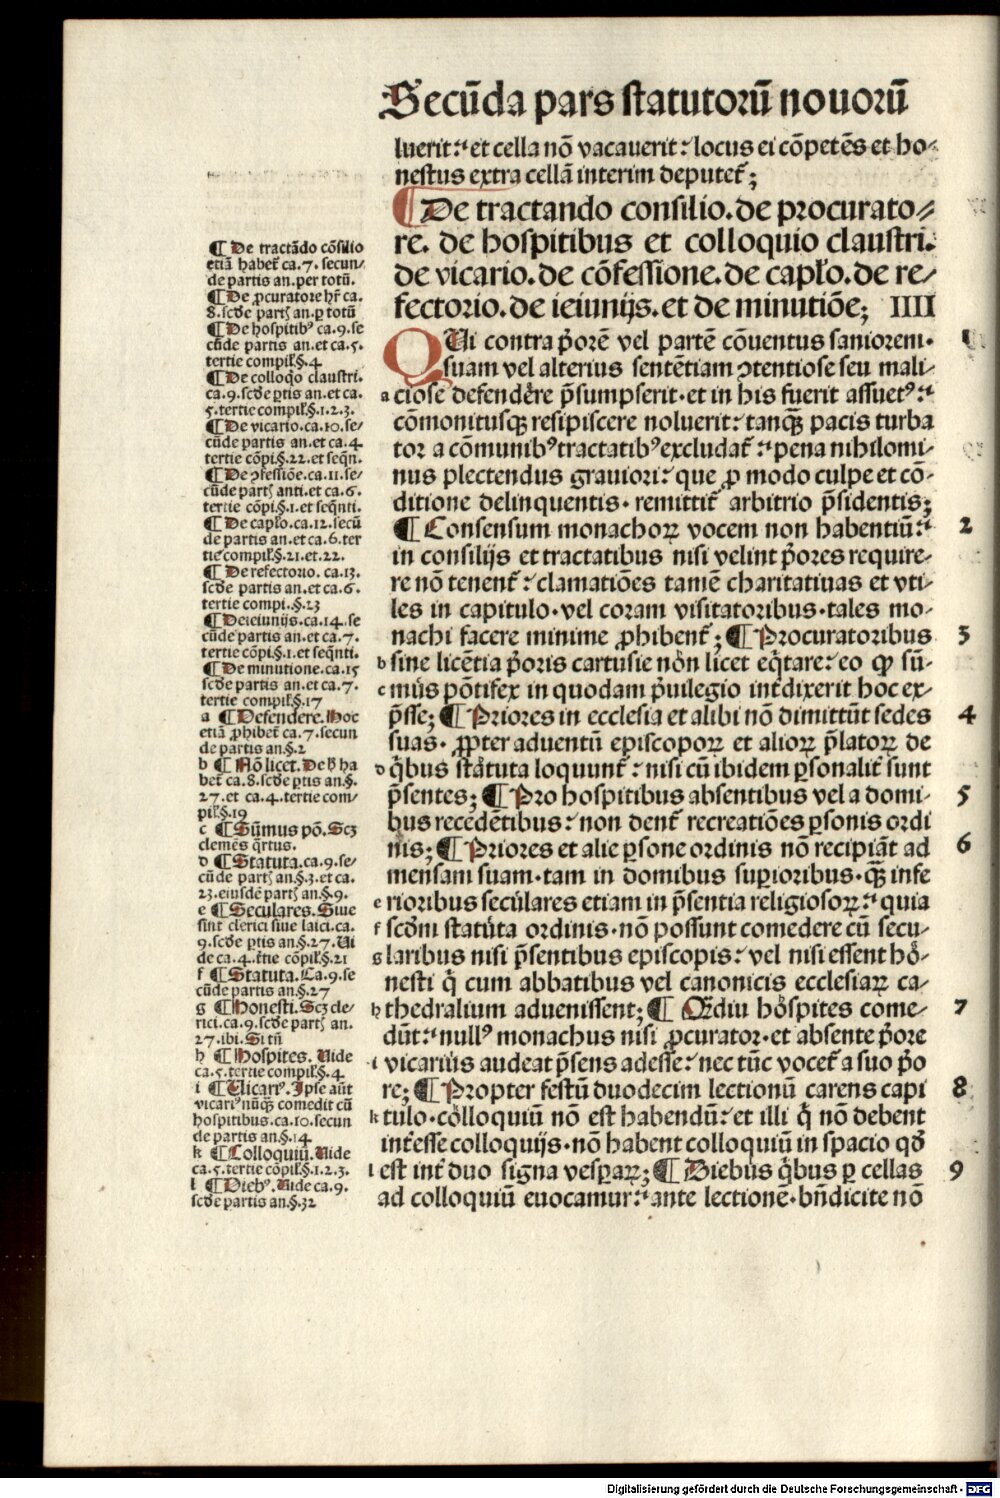 Secūda pars statutoꝝū nouoꝝū
luerit: et cella nō vacauerit: locus ei cōpetēs et ho-
nestus extra cellā interim deputet̄;
¶ De tractando consilio. de procurato⸗
re. de hospitibus et colloquio claustri.
de vicario. de cōfessione. de capło. de re⸗
fectorio. de ieiunijs. et de minutiōe; IIII
QUi contra p̄orē vel partē cōuentus saniorem· 1
suam vel alterius sentētiam ꝯtentiose seu mali-
a ciose defendere p̄sumpserit· et in his fuerit assuetꝰ:
cōmonitusqꝫ resipiscere noluerit: tanqꝫ̄ pacis turba
tor a cōmunibꝰ tractatibꝰ excludat̄: pena nihilomi-
nus plectendus grauiori: que ꝓ modo culpe et cō-
ditione delinquentis· remittit̄ arbitrio p̄sidentis;
¶ Consensum monachoꝝ vocem non habentiū: 2
in consilijs et tractatibus nisi velint p̄ores require-
re nō tenent̄: clamatiōes tamē charitatiuas et vti-
les in capitulo· vel coram visitatoribus· tales mo-
nachi facere minime ꝓhibent̄; ¶ Procuratoribus 3
b sine licētia p̄oris cartusie non licet eq̄tare: eo ꝙ sū-
c mus pōtifex in quodam p̄uilegio int̄dixerit hoc ex-
p̄sse; ¶ Priores in ecclesia et alibi nō dimittūt sedes 4
suas· ꝓpter aduentū episcopoꝝ et alioꝝ p̄latoꝝ de
d q̄bus statuta loquunt̄: nisi cū ibidem ꝑsonalit̄ sunt
p̄sentes; ¶ Pro hospitibus absentibus vel a domi- 5
bus recedētibus: non dent̄ recreatiōes ꝑsonis ordi
nis; ¶ Priores et alie ꝑsone ordinis nō recipiāt ad 6
mensam suam· tam in domibus suꝑioribus· qꝫ̄ infe
e rioribus seculares etiam in p̄sentia religiosoꝝ: quia
f scd̄m statuta ordinis· nō possunt comedere cū secu-
g laribus nisi p̄sentibus episcopis: vel nisi essent ho-
nesti q̄ cum abbatibus vel canonicis ecclesiaꝝ ca-
h thedralium aduenissent; ¶ Qꝫ̄diu hospites come- 7
dūt: nullꝰ monachus nisi ꝓcurator· et absente p̄ore
i vicarius audeat p̄sens adesse: nec tūc vocet̄ a suo p̄o
re; ¶ Propter festū duodecim lectionū carens capi 8
k tulo· colloquiū nō est habendū: et illi q̄ nō debent
int̄esse colloquijs· nō habent colloquiū in spacio qd̄
l est int̄ duo signa vesꝑaꝝ; ¶ Diebus q̄bus ꝑ cellas 9
ad colloquiū euocamur: ante lectionē· bn̄dicite nō
¶ De tractādo cōsilio
etiā habet̄ ca. 7. secun⸗
de partis an. per totū.
¶ De ꝓcuratore hr̄ ca.
8. scd̄e part̄ an. ꝑ totū
¶ De hospitibꝰ ca. 9. se
cūde partis an. et ca. 5.
tertie compil̄. §. 4
¶ De colloqo claustri.
ca. 9. scd̄e ꝑtis an. et ca.
5. tertie compil̄. §. 1. 2. 3.
¶ De vicario. ca. 10. se⸗
cūde partis an. et ca. 4.
tertie cōpi. §. 22. et seqn̄.
¶ De ꝯfessiōe. ca. 11. se⸗
cūde part̄ anti. et ca. 6.
tertie cōpi. §. 1. et seqn̄ti.
¶ De capło. ca. 12. secū
de partis an. et ca. 6. ter
tie compil̄. §. 21. et. 22.
¶ De refectorio. ca. 13.
scd̄e partis an. et ca. 6.
tertie compi. §. 23
¶ De ieiunijs. ca. 14. se
cūde partis an. et ca. 7.
tertie cōpi. §. 1. et seqn̄ti.
¶ De minutione. ca. 15
scd̄e partis an. et ca. 7.
tertie compil̄. §. 17
a ¶ Defendere. Hoc
etiā ꝓhibet̄ ca. 7. secun
de partis an. §. 2
b ¶ Nō licet. De h̄ ha
bet̄ ca. 8. scd̄e ꝑtis an. §.
27. et ca. 4. tertie com⸗
pil̄. §. 19
c ¶ Sūmus pō. Scꝫ
clemēs q̄rtus.
d ¶ Statuta. ca. 9. se⸗
cūde part̄ an. §. 3. et ca.
23. eiusdē part̄ an. §. 9.
e ¶ Seculares. Siue
sint clerici siue laici. ca.
9. scd̄e ꝑtis an. §. 27. Ui
de ca. 4. t̄tie cōpil̄. §. 21
f ¶ Statuta. Ca. 9. se
cūde partis an. §. 27
g ¶ Honesti. Scꝫ cle⸗
rici. ca. 9. scd̄e part̄ an.
27. ibi. Si tn̄
h ¶ Hospites. Uide
ca. 5. tertie compil̄. §. 4
i ¶ Uicariꝰ. Ipse aūt
vicariꝰ nūqꝫ̄ comedit cū
hospitibus. ca. 10. secun
de partis an. §. 14
k ¶ Colloquiū. Uide
ca. 5. tertie cōpil̄. §. 1. 2. 3.
l ¶ Diebꝰ. Uide ca. 9.
scd̄e partis an. §. 32
Digitalisierung gefördert durch die Deutsche Forschungsgemeinschaft - DFG